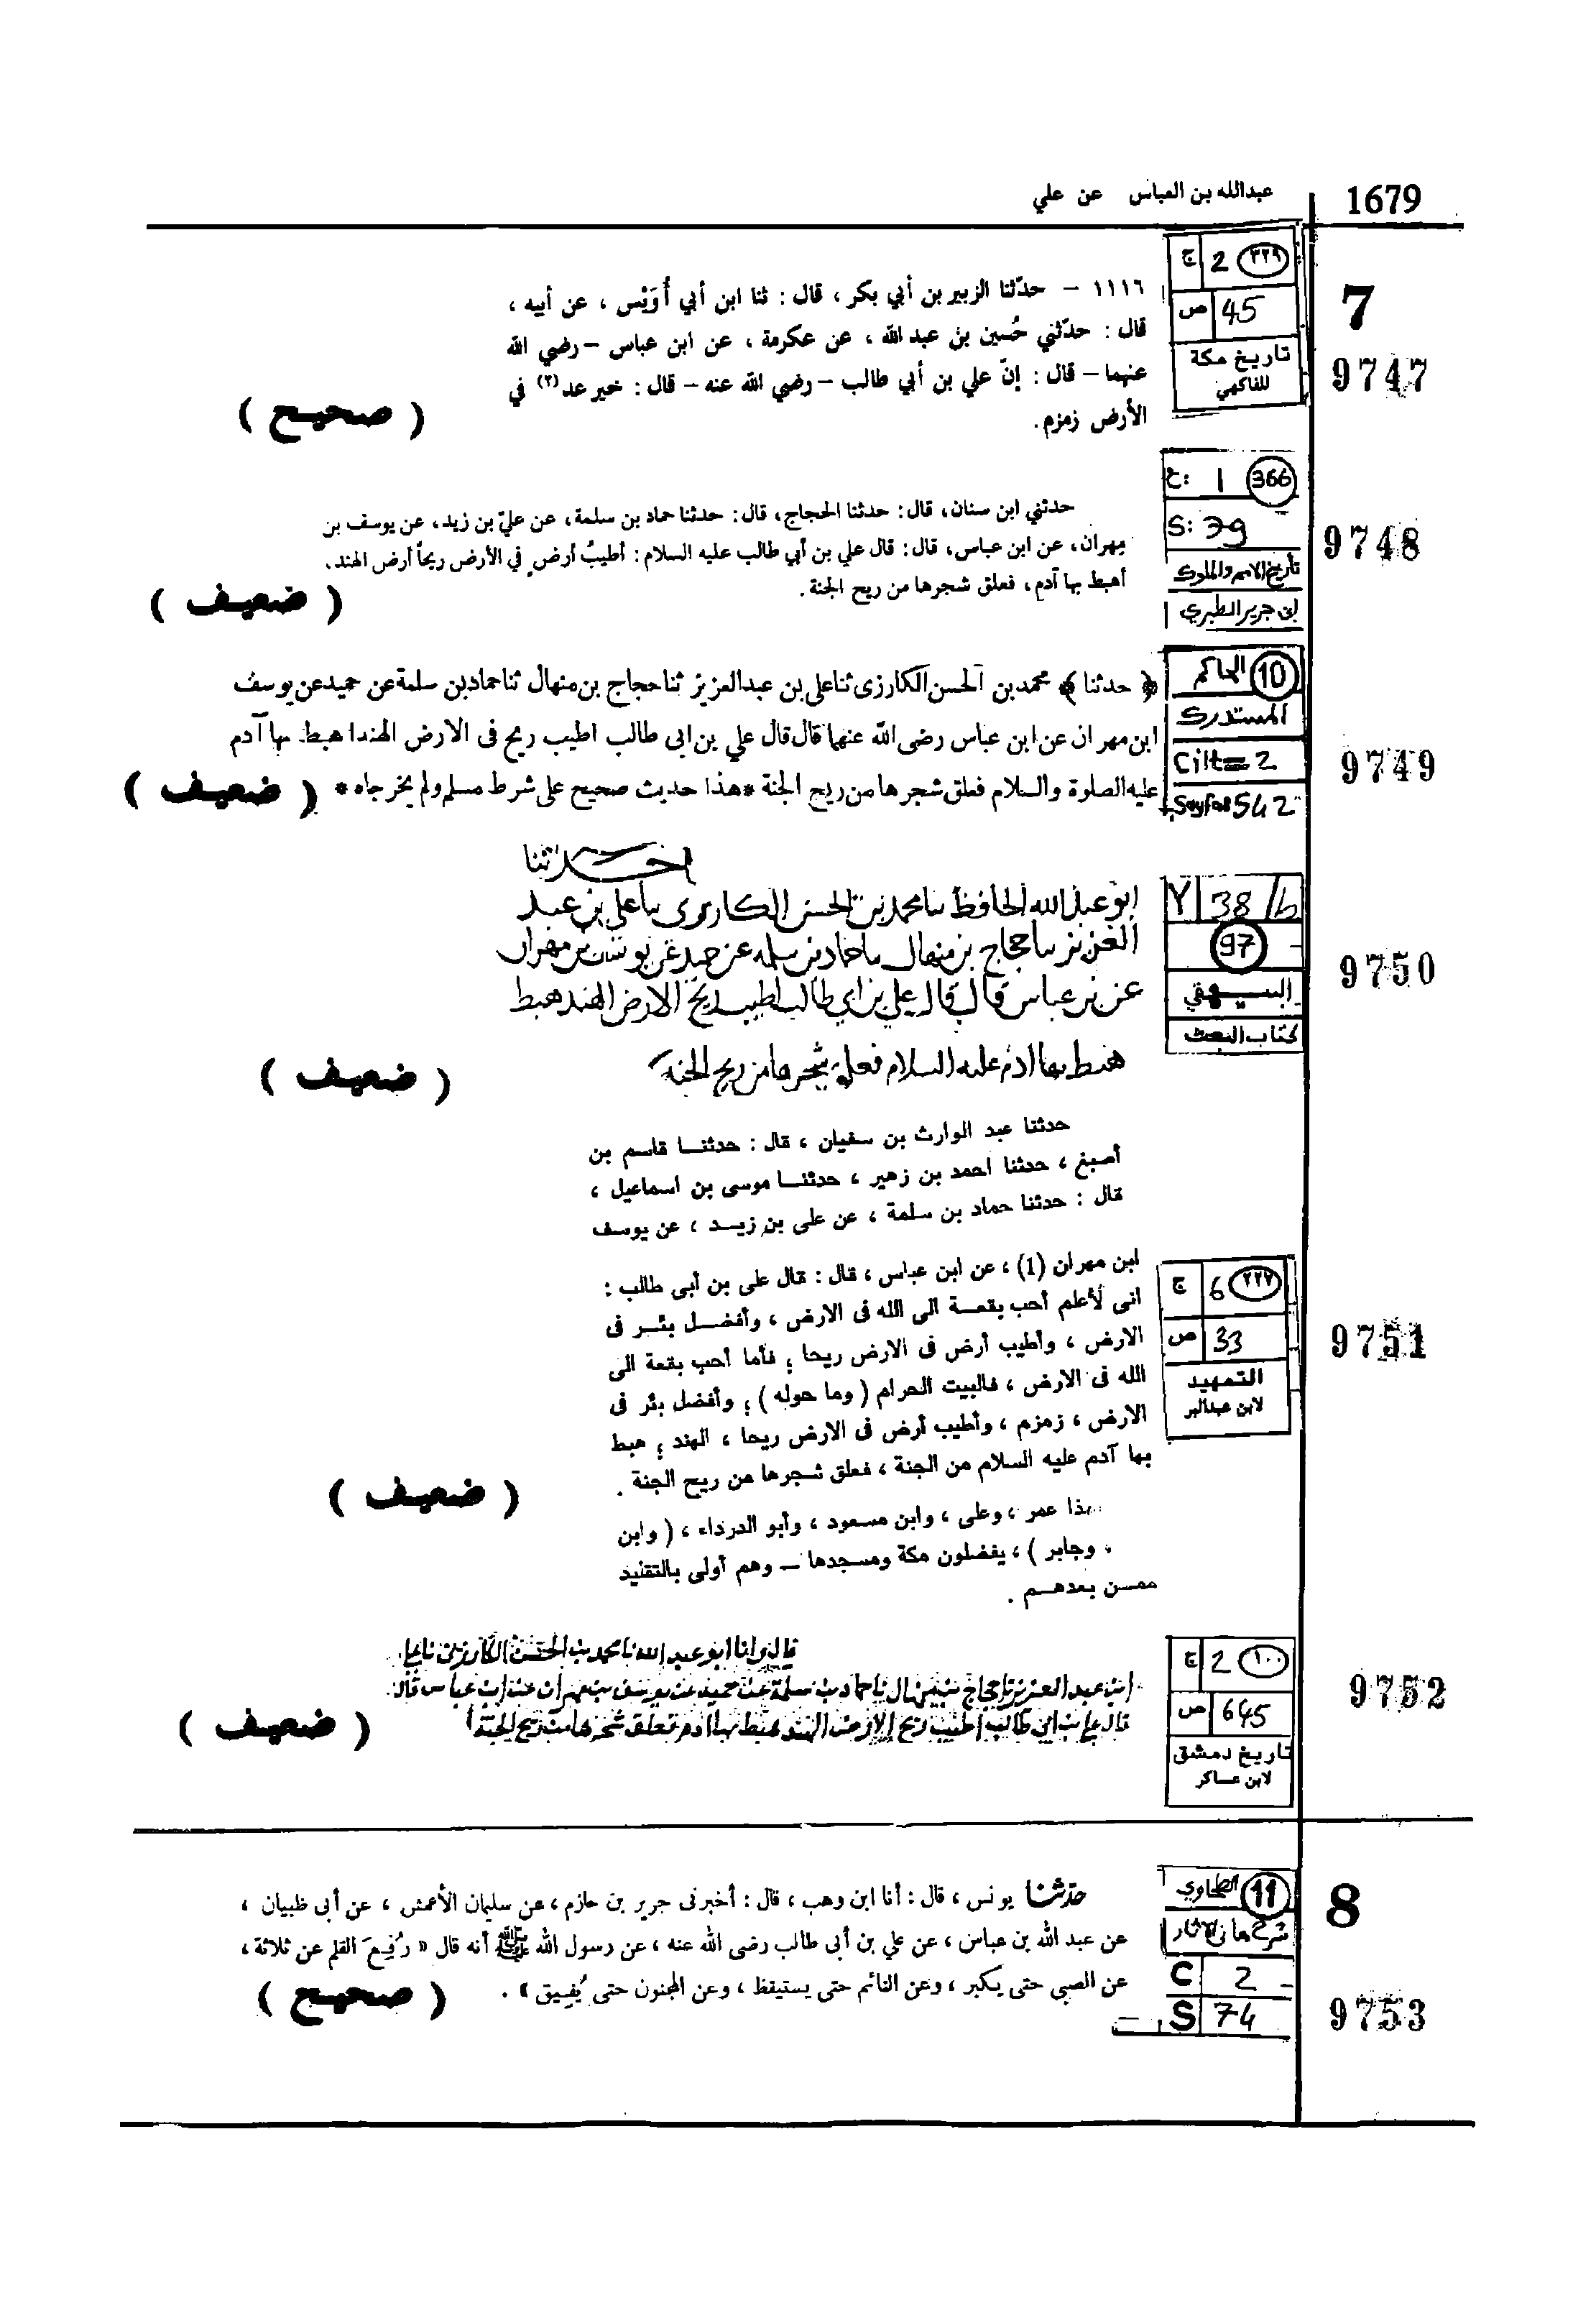 1679
عبدالله بن العباس عن علي
7
9747
ج 2 ٣٢٩
ص 45
تاريخ مكة
للفاكهي
١١١٦ – حدّثنا الزبير بن أبي بكر ، قال : ثنا ابن أبي أُوَيْس ، عن أبيه ،
قال : حدّثني حُسين بن عبد الله ، عن عكرمة ، عن ابن عباس – رضي الله
عنهما – قال : إنّ علي بن أبي طالب – رضي الله عنه – قال : خير عد(٢) في
الأرض زمزم .
( صحيح )
9748
ج: 1 366
S: 79
تأريخ الامم والملوك
ابن جرير الطبري
حدثني ابن سنان، قال: حدثنا الحجاج، قال: حدثنا حماد بن سلمة، عن عليّ بن زيد، عن يوسف بن
مِهران، عن ابن عباس، قال: قال علي بن أبي طالب عليه السلام: أطيبُ أرض في الأرض ريحاً أرض الهند،
أهبط بها آدم، فعلق شجرها من ريح الجنة .
( ضعيف )
9749
الحاكم 10
المستدرك
Cilt= 2
Sayfa= 542
﴿ حدثنا ﴾ محمد بن الحسن الكارزى ثنا على بن عبد العزيز ثنا حجاج بن منهال ثنا حماد بن سلمة عن حميد عن يوسف
ابن مهران عن ابن عباس رضى الله عنهما قال قال علي بن ابى طالب اطيب ريح فى الارض الهند اهبط بها آدم
عليه الصلوة والسلام فعلق شجرها من ريح الجنة * هذا حديث صحيح على شرط مسلم ولم يخرجاه *
( ضعيف )
9750
Y 38/b
97
البيهقي
كتاب البعث
حدثنا
ابو عبد الله الحافظ سا محمد بن الحسن الكارزي سا على بن عبد
العزيز سا حجاج بن منهال سا حماد بن سلمه عن حميد عن يوسف بن مهران
عن بن عباس قال قال علي بن ابي طالب اطيب ريح الارض الهند هبط
هبط بها ادم عليه السلام فعلق شجرها من ريح الجنة
( ضعيف )
حدثنا عبد الوارث بن سفيان ، قال : حدثنـا قاسم بن
أصبغ ، حدثنا احمد بن زهير ، حدثنـا موسى بن اسماعيل ،
قال : حدثنا حماد بن سلمة ، عن على بن زيـد ، عن يوسف
9751
ج 6 ٢٢٧
ص 33
التمهيد
لابن عبدالبر
ابن مهران (1) ، عن ابن عباس ، قال : قال على بن أبى طالب :
انى لأعلم أحب بقعـة الى الله فى الارض ، وأفضـل بئـر فى
الارض ، وأطيب أرض فى الارض ريحا ؛ فأما أحب بقعة الى
الله فى الارض ، فالبيت الحرام ( وما حوله ) ؛ وأفضل بئر فى
الارض ، زمزم ، وأطيب أرض فى الارض ريحا ، الهند ؛ هبط
بها آدم عليه السلام من الجنة ، فعلق شـجرها من ريح الجنة .
( ضعيف )
هذا عمر ، وعلى ، وابن مسعود ، وأبو الدرداء ، ( وابن
، وجابر ) ، يفضلون مكة ومسجدها — وهم أولى بالتقليد
ممـن بعدهـم .
9752
ج 2 ١٠٠
ص 645
تاريخ دمشق
لابن عساكر
قال انا ابو عبد الله نا محمد بن الحسن الكارزى نا على
ابن عبد العزيز نا حجاج بن منهال نا حماد بن سلمة عن حميد عن يوسف بن مهران عن ابن عباس قال
قال على بن ابي طالب اطيب ريح الارض الهند هبط بها ادم فعلق شجرها من ريح الجنة
( ضعيف )
8
9753
الطحاوي 11
شرح معاني الاثار
C 2
S 74
حدّثنا يونس ، قال : أنا ابن وهب ، قال : أخبرنى جرير بن حازم ، عن سليمان الأعمش ، عن أبى ظبيان ،
عن عبد الله بن عباس ، عن علي بن أبى طالب رضى الله عنه ، عن رسول الله ﷺ أنه قال « رُفِعَ القلم عن ثلاثة ،
عن الصبي حتى يكبر ، وعن النائم حتى يستيقظ ، وعن المجنون حتى يُفِيق » .
( صحيح )